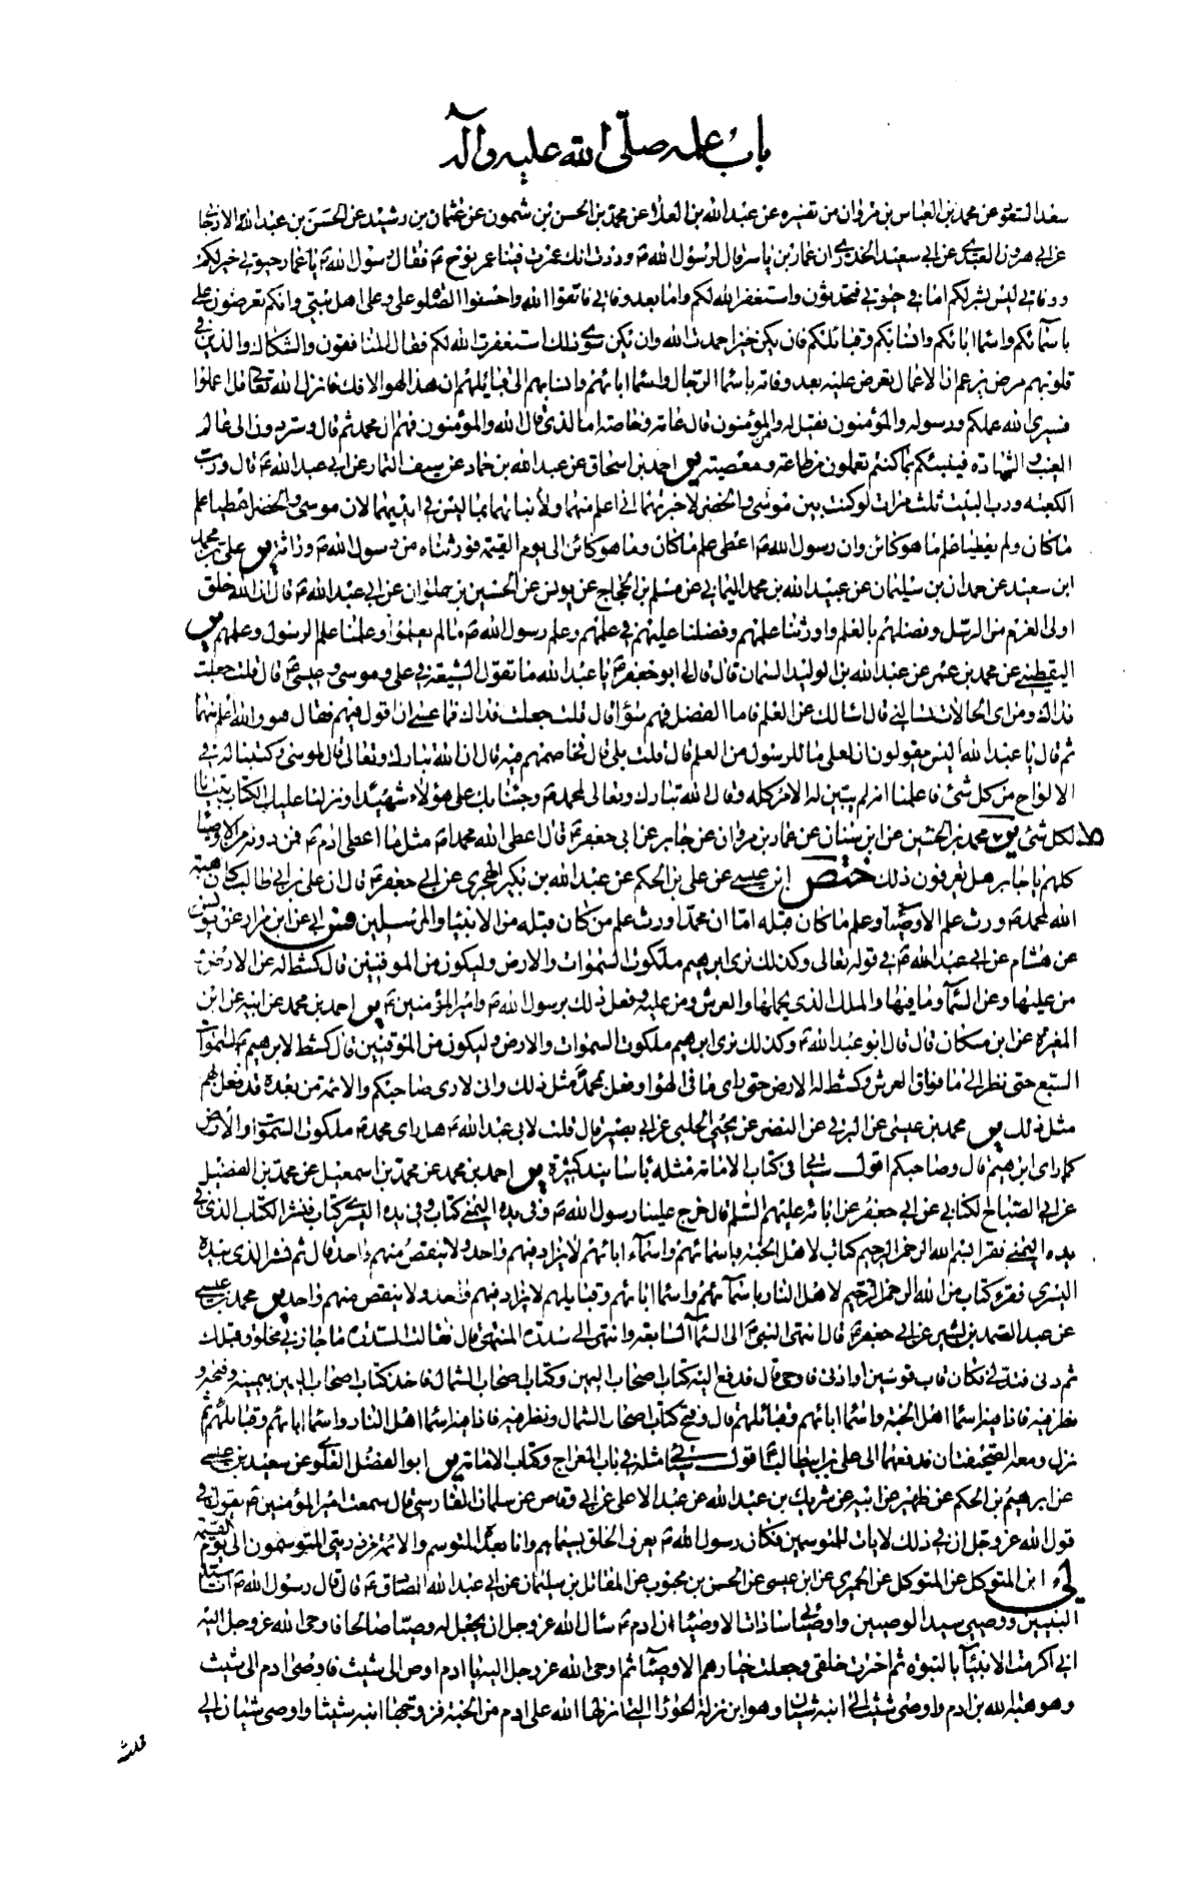 باب علمه صلّى الله عليه وآله
سعد السعود عن محمد بن العباس بن مروان من تفسيره عن عبد الله بن العلا عن محمد بن الحسن بن شمون عن عثمان بن رشيد عن الحسن بن عبد الله الارجاني
عن ابي هرون العبدي عن ابي سعيد الخدري ان عمار بن ياسر قال لرسول الله ص وددت انك عمرت فينا عمر نوح ع فقال رسول الله ص يا عمار حيوتي خير لكم
ووفاتي ليس بشر لكم اما في حيوتي فتحدثون واستغفر الله لكم واما بعد وفاتي فاتقوا الله واحسنوا الصلوة علي وعلى اهل بيتي وانكم تعرضون علي
باسمائكم واسماء ابائكم وانسابكم وقبائلكم فان يكن خيرا حمدت الله وان يكن سوى ذلك استغفرت الله لكم فقال المنافقون والشكاك والذين في
قلوبهم مرض يزعم ان الاعمال تعرض عليه بعد وفاته باسماء الرجال واسماء ابائهم وانسابهم الى قبائلهم ان هذا لهو الافك فانزل الله تعالى قل اعملوا
فسيرى الله عملكم ورسوله والمؤمنون فقيل له ومن المؤمنون قال عامة وخاصة اما الذي قال الله والمؤمنون فهم ال محمد ثم قال وستردون الى عالم
الغيب والشهادة فينبئكم بما كنتم تعملون من طاعة ومعصية ير احمد بن اسحاق عن عبد الله بن حماد عن سيف التمار عن ابي عبد الله ع قال ورب
الكعبة ورب البيت ثلث مرات لو كنت بين موسى والخضر لاخبرتهما اني اعلم منهما ولأنبأتهما بما ليس في ايديهما لان موسى والخضر اعطيا علم
ما كان ولم يعطيا علم ما هو كائن وان رسول الله ص اعطى علم ما كان وما هو كائن الى يوم القيمة فورثناه من رسول الله ص وراثة ير علي بن محمد
ابن سعيد عن حمدان بن سليمان عن عبيد الله بن محمد اليماني عن مسلم بن الحجاج عن يونس عن الحسين بن علوان عن ابي عبد الله ع قال ان الله خلق
اولى العزم من الرسل وفضلهم بالعلم واورثنا علمهم وفضلنا عليهم في علمهم وعلم رسول الله ص ما لم يعلموا وعلمنا علم الرسول وعلمهم ير
اليقطيني عن محمد بن عمر عن عبد الله بن الوليد السمان قال قال لي ابو جعفر ع يا عبد الله ما تقول الشيعة في علي وموسى وعيسى ع قال قلت جعلت
فداك ومن اي الحالات تسألني قال اسالك عن العلم فاما الفضل فهم سواء قال قلت جعلت فداك فما عسى ان اقول فيهم فقال هو والله اعلم منهما
ثم قال يا عبد الله اليس يقولون ان لعلي ما للرسول من العلم قال قلت بلى قال فخاصمهم فيه قال ان الله تبارك وتعالى قال لموسى وكتبنا له في
الالواح من كل شئ فاعلمنا انه لم يبين له الامر كله وقال الله تبارك وتعالى لمحمد ص وجئنا بك على هؤلاء شهيدا ونزلنا عليك الكتاب تبيانا
لكل شئ ير محمد بن الحسين عن ابن سنان عن عمار بن مروان عن جابر عن ابي جعفر ع قال اعطى الله محمدا ص مثل ما اعطى ادم ع فمن دونه من الاوصيا
كلهم يا جابر هل تعرفون ذلك ختص ابن عيسى عن علي بن الحكم عن عبد الله بن بكير الهجري عن ابي جعفر ع قال ان علي بن ابي طالب كان هبة
الله لمحمد ص ورث علم الاوصيا وعلم ما كان قبله اما ان محمدا ورث علم من كان قبله من الانبيا والمرسلين فس ابي عن ابن مرار عن يونس
عن هشام عن ابي عبد الله ع في قوله تعالى وكذلك نرى ابرهيم ملكوت السموات والارض وليكون من الموقنين قال كشط له عن الارض
من عليها وعن السماء وما فيها والملك الذي يحملها والعرش ومن عليه وفعل ذلك برسول الله ص وامير المؤمنين ع ير احمد بن محمد عن ابيه عن ابن
المغيرة عن ابن مسكان قال قال ابو عبد الله ع وكذلك نرى ابرهيم ملكوت السموات والارض وليكون من الموقنين قال كشط لابرهيم ع السموات
السبع حتى نظر الى ما فوق العرش وكشط له الارض حتى راى ما في الهواء وفعل بمحمد ص مثل ذلك واني لارى صاحبكم والائمة من بعده قد فعل بهم
مثل ذلك ير محمد بن عيسى عن البرقي عن النضر عن يحيى الحلبي عن ابي بصير قال قلت لابي عبد الله ع هل راى محمد ص ملكوت السموات والأرض
كما راى ابرهيم قال وصاحبكم اقول سيأتي في كتاب الامامة مثله باسانيد كثيرة ير احمد بن محمد عن محمد بن اسمعيل عن محمد بن الفضيل
عن ابي الصباح الكناني عن ابي جعفر عن ابائه عليهم السلم قال خرج علينا رسول الله ص وفي يده اليمنى كتاب وفي يده اليسرى كتاب فنشر الكتاب الذي في
يده اليمنى فقرا بسم الله الرحمن الرحيم كتاب لاهل الجنة باسمائهم واسماء ابائهم لا يزاد فيهم واحد ولا ينقص منهم واحد قال ثم نشر الذي بيده
اليسرى فقرء كتاب من الله الرحمن الرحيم لاهل النار باسمائهم واسماء ابائهم وقبايلهم لا يزاد فيهم واحد ولا ينقص منهم واحد ير محمد بن عيسى
عن عبد الصمد بن بشير عن ابي جعفر ع قال انتهى النبي ص الى السماء السابعة وانتهى الى سدرة المنتهى قال فقالت السدرة ما جازني مخلوق قبلك
ثم دنى فتدلى فكان قاب قوسين او ادنى فاوحى قال فدفع اليه كتاب اصحاب اليمين وكتاب اصحاب الشمال فاخذ كتاب اصحاب اليمين بيمينه وفتحه و
نظر فيه فاذا فيه اسماء اهل الجنة واسماء ابائهم وقبائلهم قال وفتح كتاب اصحاب الشمال ونظر فيه فاذا فيه اسماء اهل النار واسماء ابائهم وقبائلهم ثم
نزل ومعه الصحيفتان فدفعهما الى علي بن ابيطالب ع اقول سيأتي مثله في باب المعراج وكتاب الامامة ير ابو الفضل العلوي عن سعيد بن عيسى
عن ابرهيم بن الحكم عن ظهير عن ابيه عن شريك بن عبد الله عن عبد الاعلى عن ابي وقاص عن سلمان الفارسي قال سمعت امير المؤمنين ع يقول في
قول الله عز وجل ان في ذلك لايات للمتوسمين فكان رسول الله ص يعرف الخلق بسيماهم وانا بعده المتوسم والائمة من ذريتي المتوسمون الى يوم القيمة
لى ابن المتوكل عن الحميري عن ابن عيسى عن الحسن بن محبوب عن المقاتل بن سليمان عن ابي عبد الله الصادق ع قال قال رسول الله ص انا سيد
النبيين ووصيي سيد الوصيين واوصيائي سادات الاوصياء ان ادم ع سال الله عز وجل ان يجعل له وصيا صالحا فاوحى الله عز وجل اليه
اني اكرمت الانبياء بالنبوة ثم اخترت خلقي وجعلت خيارهم الاوصياء ثم اوحى الله عز وجل اليه يا ادم اوص الى شيث فاوصى ادم الى شيث
وهو هبة الله بن ادم واوصى شيث الى ابنه شبان وهو ابن نزلة الحوراء التي انزلها الله على ادم من الجنة فزوجها ابنه شيثا واوصى شبان الى